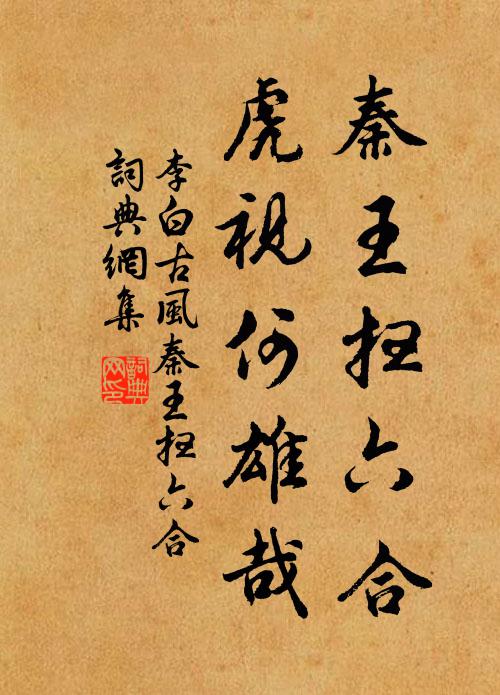 秦王扫六合
虎视何雄哉
李白古風秦王扫六合
詞典網集
詞典网印